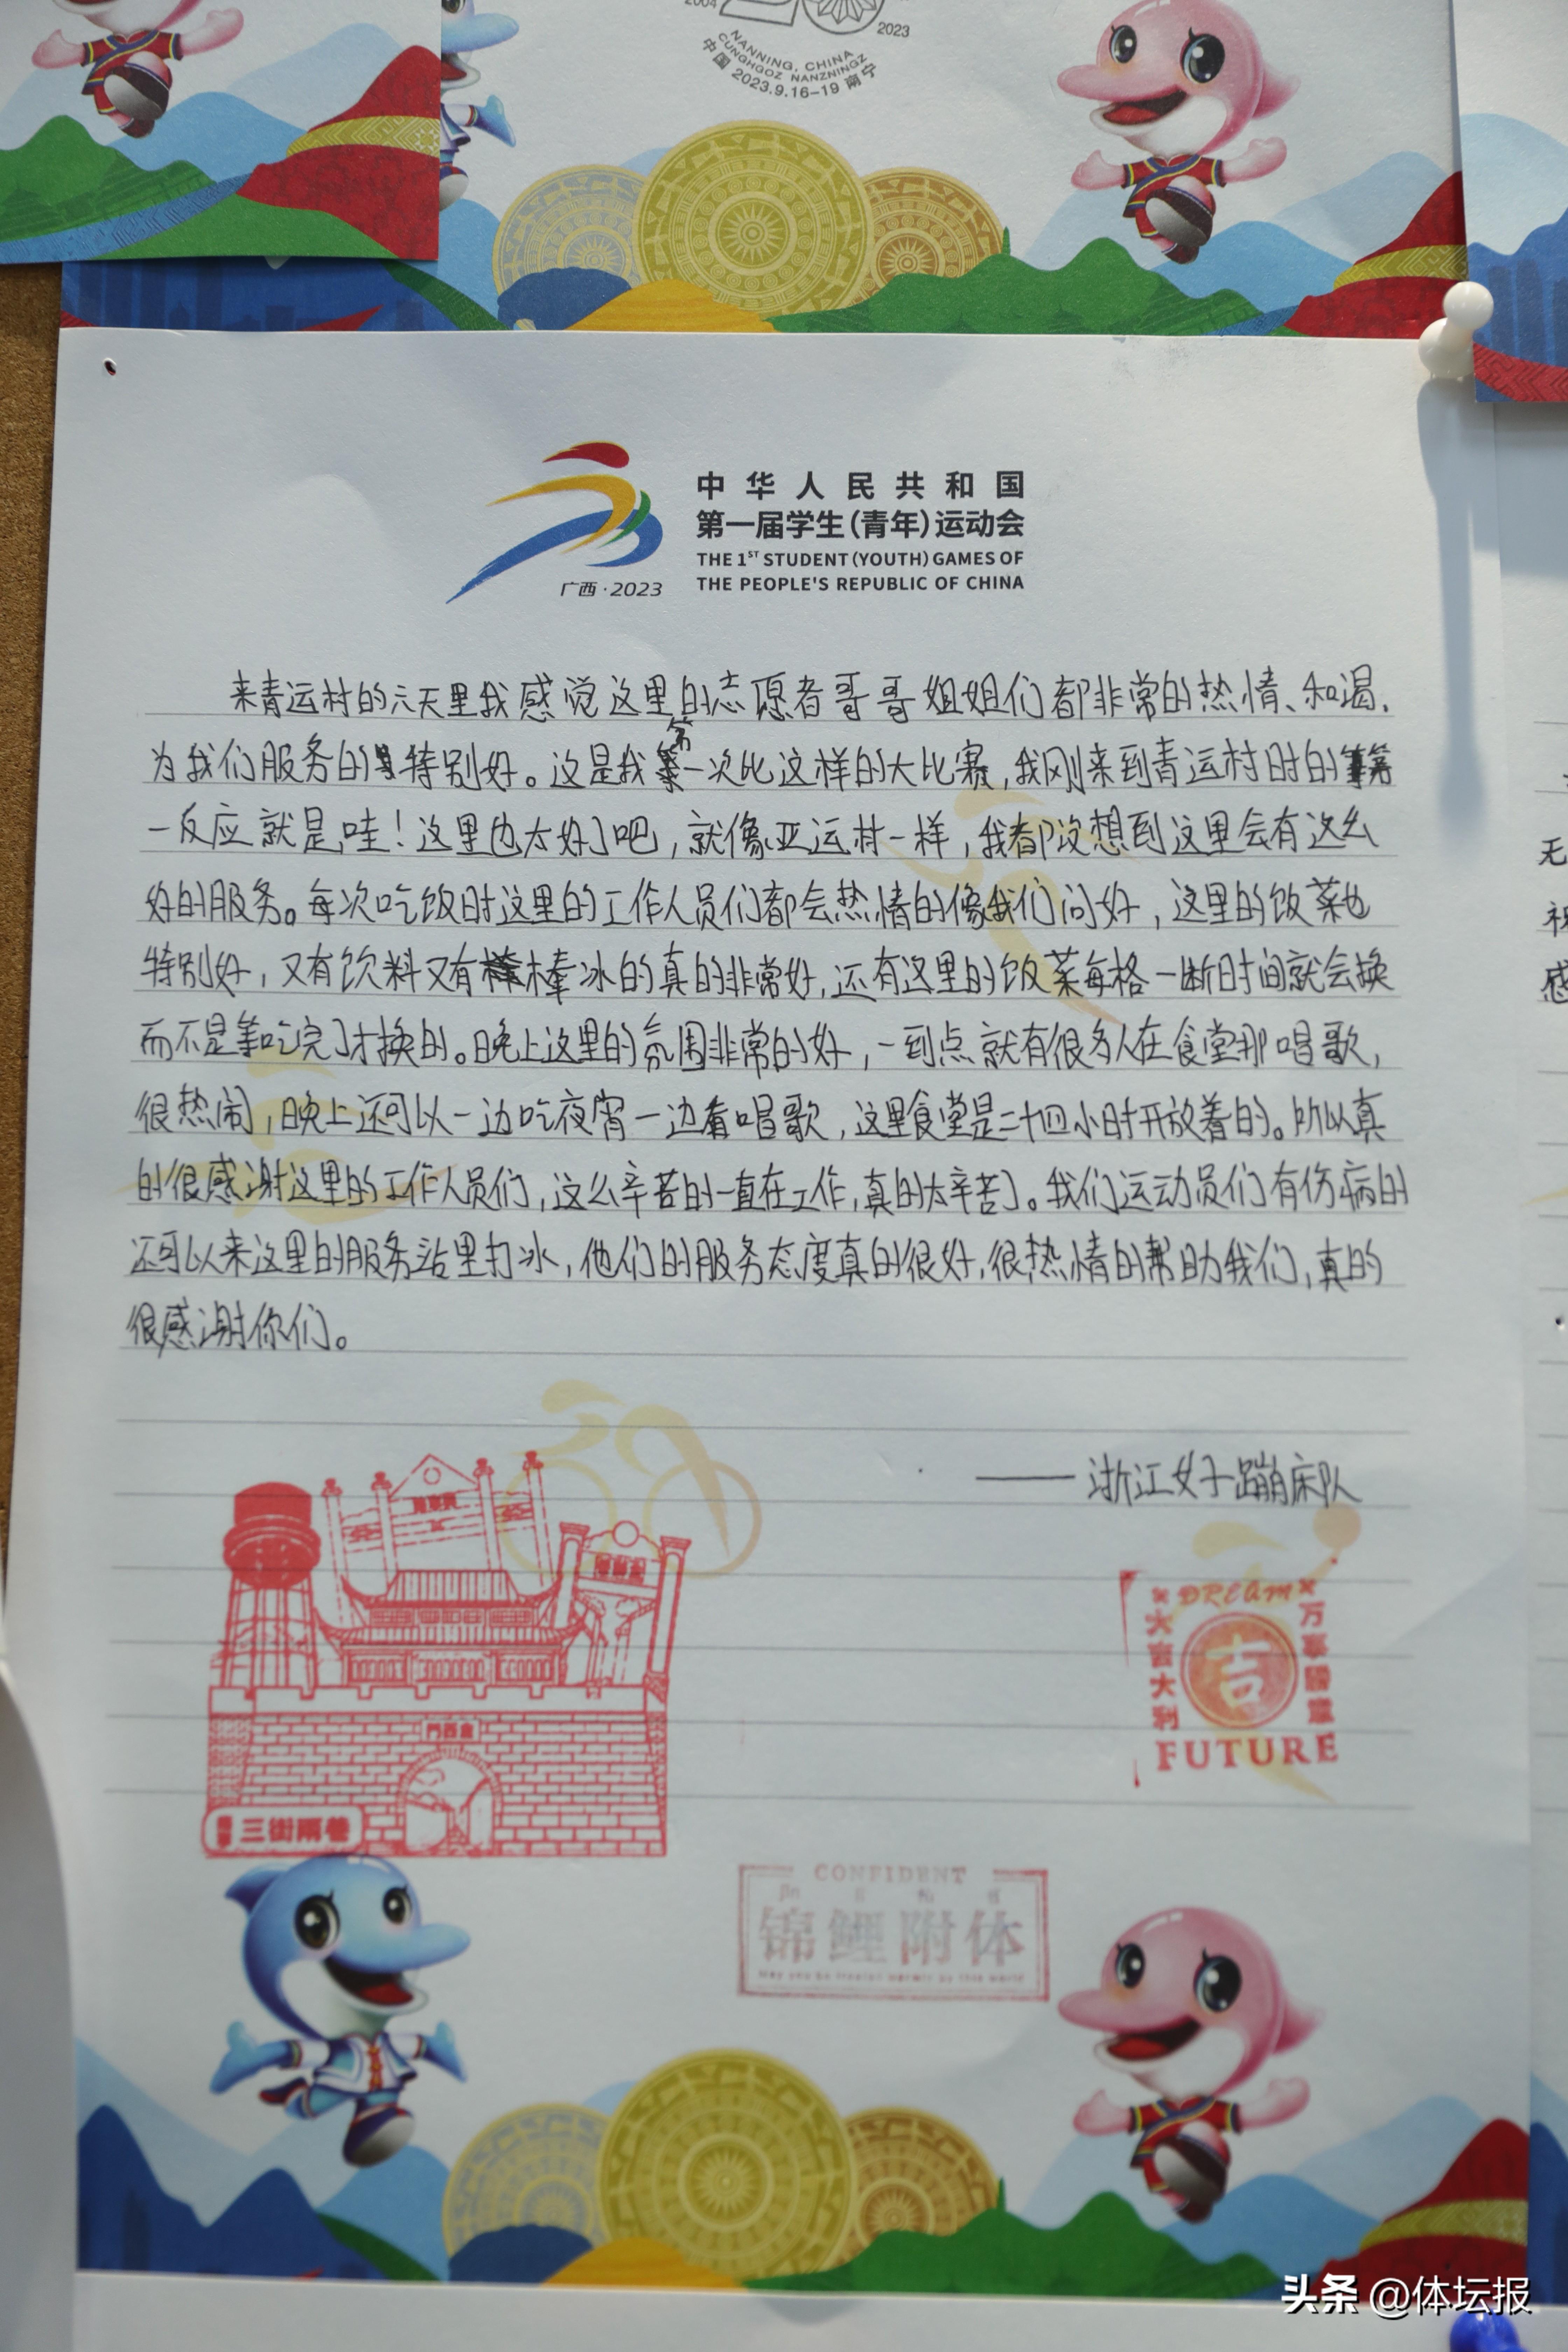 2004
2023
NANNING, CHINA
CUNGHGOZ NANZNINGZ
中国 2023.9.16-19 南宁
中华人民共和国
第一届学生(青年)运动会
THE 1ST STUDENT (YOUTH) GAMES OF
THE PEOPLE'S REPUBLIC OF CHINA
广西·2023
来青运村的六天里我感觉这里的志愿者哥哥姐姐们都非常的热情、和谒.
为我们服务的特别好。这是我第一次比这样的大比赛,我刚来到青运村时的第
一反应就是哇!这里也太好了吧,就像亚运村一样,我都没想到这里会有这么
好的服务。每次吃饭时这里的工作人员们都会热情的像我们问好,这里的饭菜也
特别好,又有饮料又有棒冰的真的非常好,还有这里的饭菜每格一断时间就会换
而不是等吃完了才换的。晚上这里的氛围非常的好,一到点就有很多人在食堂那唱歌,
很热闹,晚上还可以一边吃夜宵一边看唱歌,这里食堂是二十四小时开放着的。所以真
的很感谢这里的工作人员们,这么辛苦的一直在工作,真的太辛苦了。我们运动员们有伤病的
还可以来这里的服务站里打冰,他们的服务态度真的很好,很热情的帮助我们,真的
很感谢你们。
——浙江女子蹦床队
DREAM
大吉大利
吉
万事胜意
FUTURE
三街兩巷
CONFIDENT
锦鲤附体
无
祝
感
头条 @体坛报